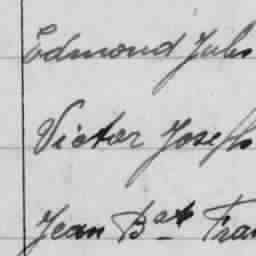 Edmond Jules
Victor Joseph
Jean Bat Fran